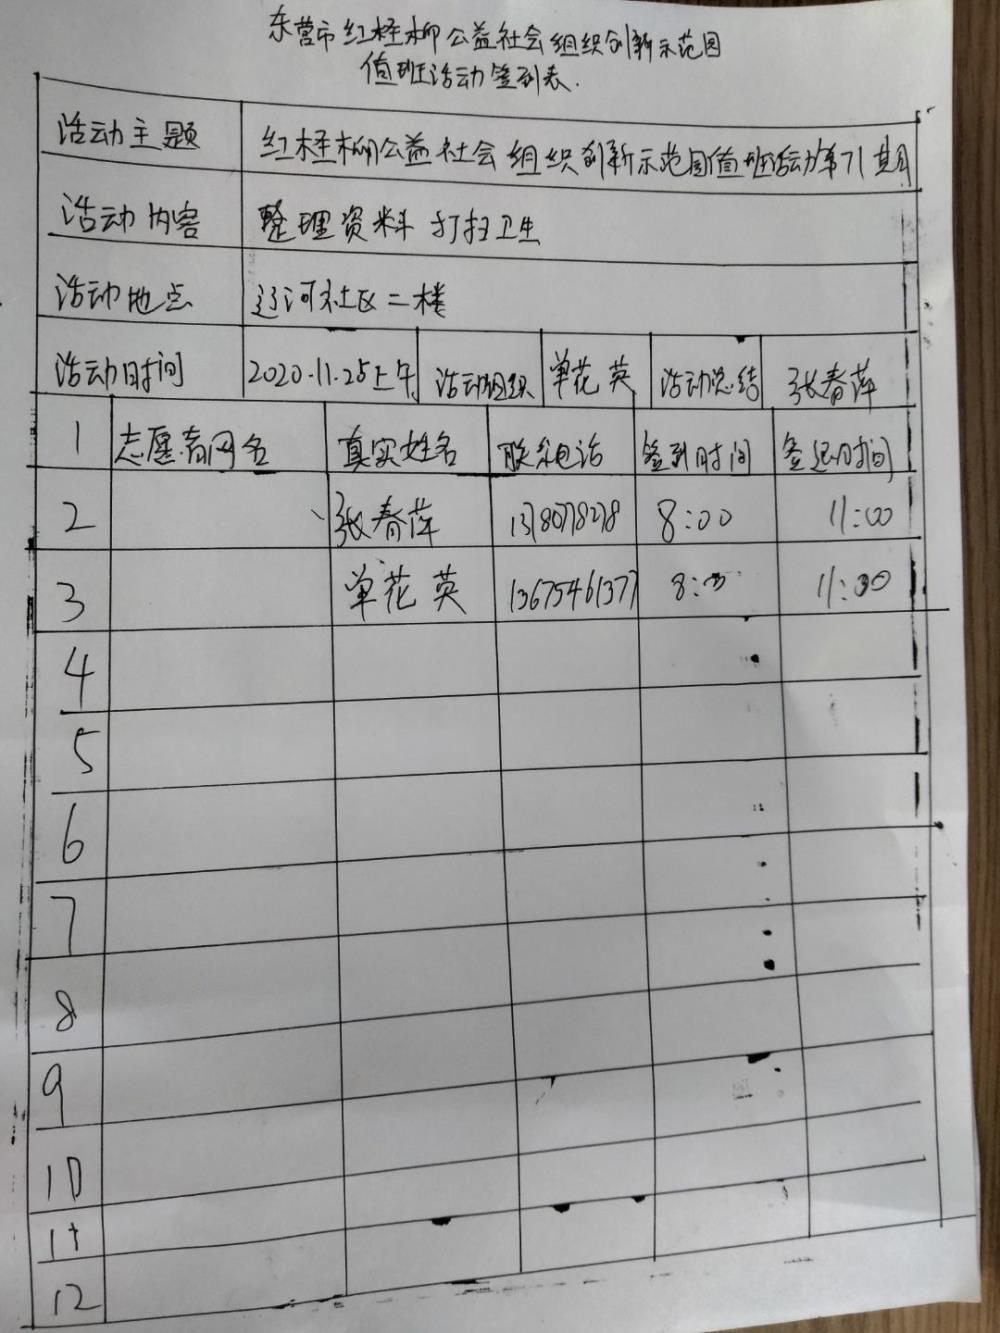 东营市红柽柳公益社会组织创新示范园
值班活动签到表.
活动主题 红柽柳公益社会组织创新示范园值班活动第71期
活动内容 整理资料 打扫卫生
活动地点 辽河社区二楼
活动时间 2020.11.25上午 活动组织 单花英 活动总结 张春萍
1 志愿者网名 真实姓名 联系电话 签到时间 签退时间
2 张春萍 8:00 11:00
3 单花英 13675461377 8:00 11:30
4
5
6
7
8
9
10
11
12